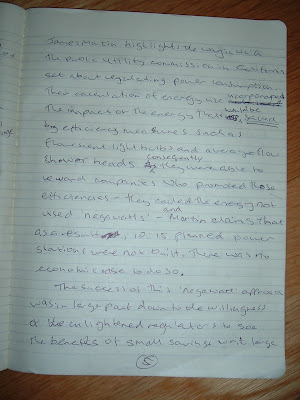 James Martin highlights the way in which
the public utility commission in California
set about regulating power consumption.
Their calculation of energy use
the impact of the energy that would be saved
by efficiency measures such as
fluorescent light bulbs and aerating flow
shower heads. Consequently they were able to
reward companies who promoted these
efficiencies - they called the energy not
used 'negawatts' - and Martin claims that
as a result, 10-15 planned power
stations were not built. There was no
economic case to do so.
The success of this 'negawatt' approach
was in large part down to the willingness
of the enlightened regulators to see
the benefits of small savings writ large
5